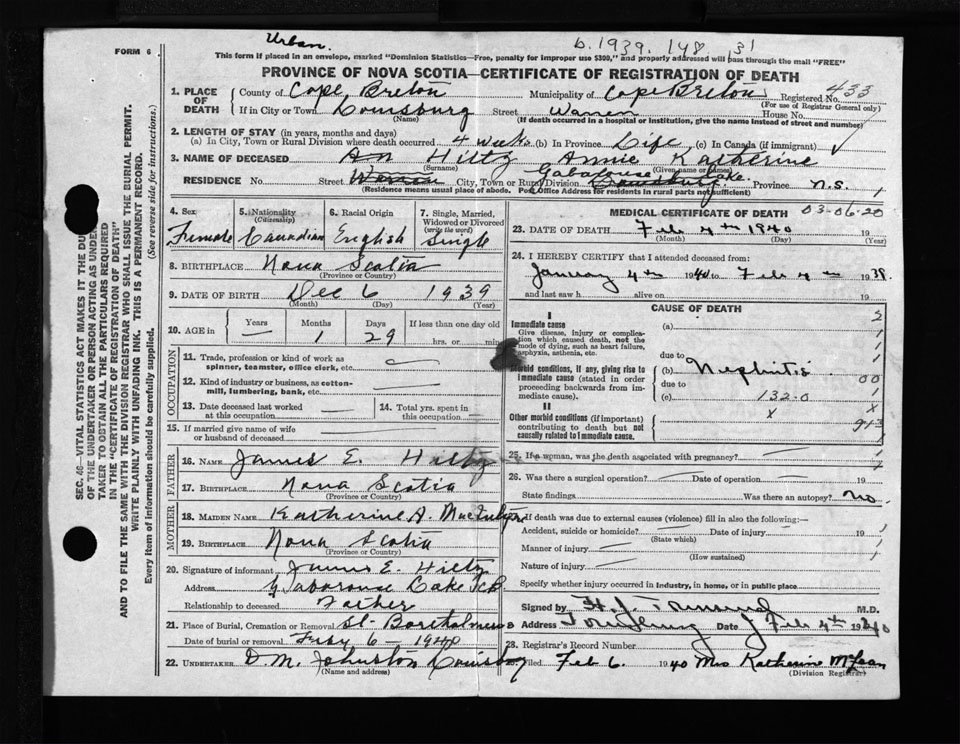 Urban.
b. 1939. 148 31
FORM 6
This form if placed in an envelope, marked "Dominion Statistics—Free, penalty for improper use $300," and properly addressed will pass through the mail "FREE"
PROVINCE OF NOVA SCOTIA—CERTIFICATE OF REGISTRATION OF DEATH
433
1. PLACE OF DEATH
County of Cape Breton Municipality of Cape Breton Registered No.
(For use of Registrar General only)
If in City or Town Louisburg Street Warren House No.
(Name) (If death occurred in a hospital or institution, give the name instead of street and number)
2. LENGTH OF STAY (in years, months and days)
(a) In City, Town or Rural Division where death occurred 4 weeks (b) In Province Life (c) In Canada (if immigrant)
3. NAME OF DECEASED An Hiltz Annie Katherine
(Surname) (Given name or names)
Gabarouse Lake.
RESIDENCE No. Street Warren City, Town or Rural Division Louisburg Province N.S.
(Residence means usual place of abode. Post Office Address for residents in rural parts not sufficient)
4. Sex
Female
5. Nationality (Citizenship)
Canadian
6. Racial Origin
English
7. Single, Married, Widowed or Divorced (write the word)
Single
8. BIRTHPLACE Nova Scotia
(Province or Country)
9. DATE OF BIRTH Dec 6 1939
(Month) (Day) (Year)
10. AGE in Years Months Days If less than one day old
— 1 29 hrs. or min.
OCCUPATION
11. Trade, profession or kind of work as spinner, teamster, office clerk, etc.
12. Kind of industry or business, as cotton-mill, lumbering, bank, etc.
13. Date deceased last worked at this occupation
14. Total yrs. spent in this occupation
15. If married give name of wife or husband of deceased
FATHER
16. NAME James E. Hiltz
17. BIRTHPLACE Nova Scotia
(Province or Country)
MOTHER
18. MAIDEN NAME Katherine A.
19. BIRTHPLACE Nova Scotia
(Province or Country)
20. Signature of informant James E. Hiltz
Address Gabarouse Lake
Relationship to deceased Father
21. Place of Burial, Cremation or Removal St. Bartholmews
Date of burial or removal Feby 6 - 1940
22. UNDERTAKER D.M. Johnston Louisburg
(Name and address)
MEDICAL CERTIFICATE OF DEATH 03-06-20
23. DATE OF DEATH Feb 4th 1940 19
(Month) (Day) (Year)
24. I HEREBY CERTIFY that I attended deceased from:
January 4th 1940 to Feb 4th 1938.
and last saw h alive on 19
CAUSE OF DEATH
I
Immediate cause
Give disease, injury or complication which caused death, not the mode of dying, such as heart failure, asphyxia, asthenia, etc.
(a)
due to
Morbid conditions, if any, giving rise to immediate cause (stated in order proceeding backwards from immediate cause).
(b) Nephritis
due to
(c) 132.0
II
Other morbid conditions (if important) contributing to death but not causally related to immediate cause.
x
25. If a woman, was the death associated with pregnancy?
26. Was there a surgical operation? Date of operation 19
State findings Was there an autopsy? no
27. If death was due to external causes (violence) fill in also the following:—
Accident, suicide or homicide? Date of injury 19
(State which)
Manner of injury
(How sustained)
Nature of injury
Specify whether injury occurred in industry, in home, or in public place
Signed by M.D.
Address Date Feb 4th 1940
28. Registrar's Record Number
Filed Feb 6. 1940 Mrs Katherine McLean
(Division Registrar)
SEC. 46—VITAL STATISTICS ACT MAKES IT THE DUTY
OF THE UNDERTAKER OR PERSON ACTING AS UNDERTAKER
TO OBTAIN ALL THE PARTICULARS REQUIRED
IN THE "CERTIFICATE OF REGISTRATION OF DEATH"
AND TO FILE THE SAME WITH THE DIVISION REGISTRAR WHO SHALL ISSUE THE BURIAL PERMIT.
WRITE PLAINLY WITH UNFADING INK. THIS IS A PERMANENT RECORD.
Every item of information should be carefully supplied. (See reverse side for instructions.)